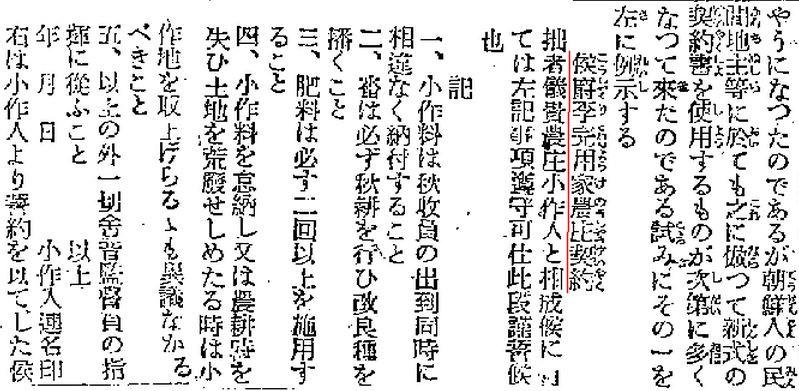 やうになつたのであるが朝鮮人の民
間地主等に於ても之に倣つて新式の
契約書を使用するものが次第に多く
なつて來たのである試みにその一を
左に例示する
侯爵李完用家農庄契約
拙者儀貴農庄小作人と相成候に付
ては左記事項遵守可仕此段謹誓候
也
記
一、小作料は秋收員の出到同時に
相違なく納付すること
二、畓は必ず秋耕を行ひ改良種を
播くこと
三、肥料は必ず二回以上を施用す
ること
四、小作料を怠納し又は農耕時を
失ひ土地を荒廢せしめたる時は小
作地を取上げらるゝも異議なかる
べきこと
五、以上の外一切舍音監督員の指
揮に從ふこと　以上
年　月　日　小作人連名印
右は小作人より誓約を以てした侯